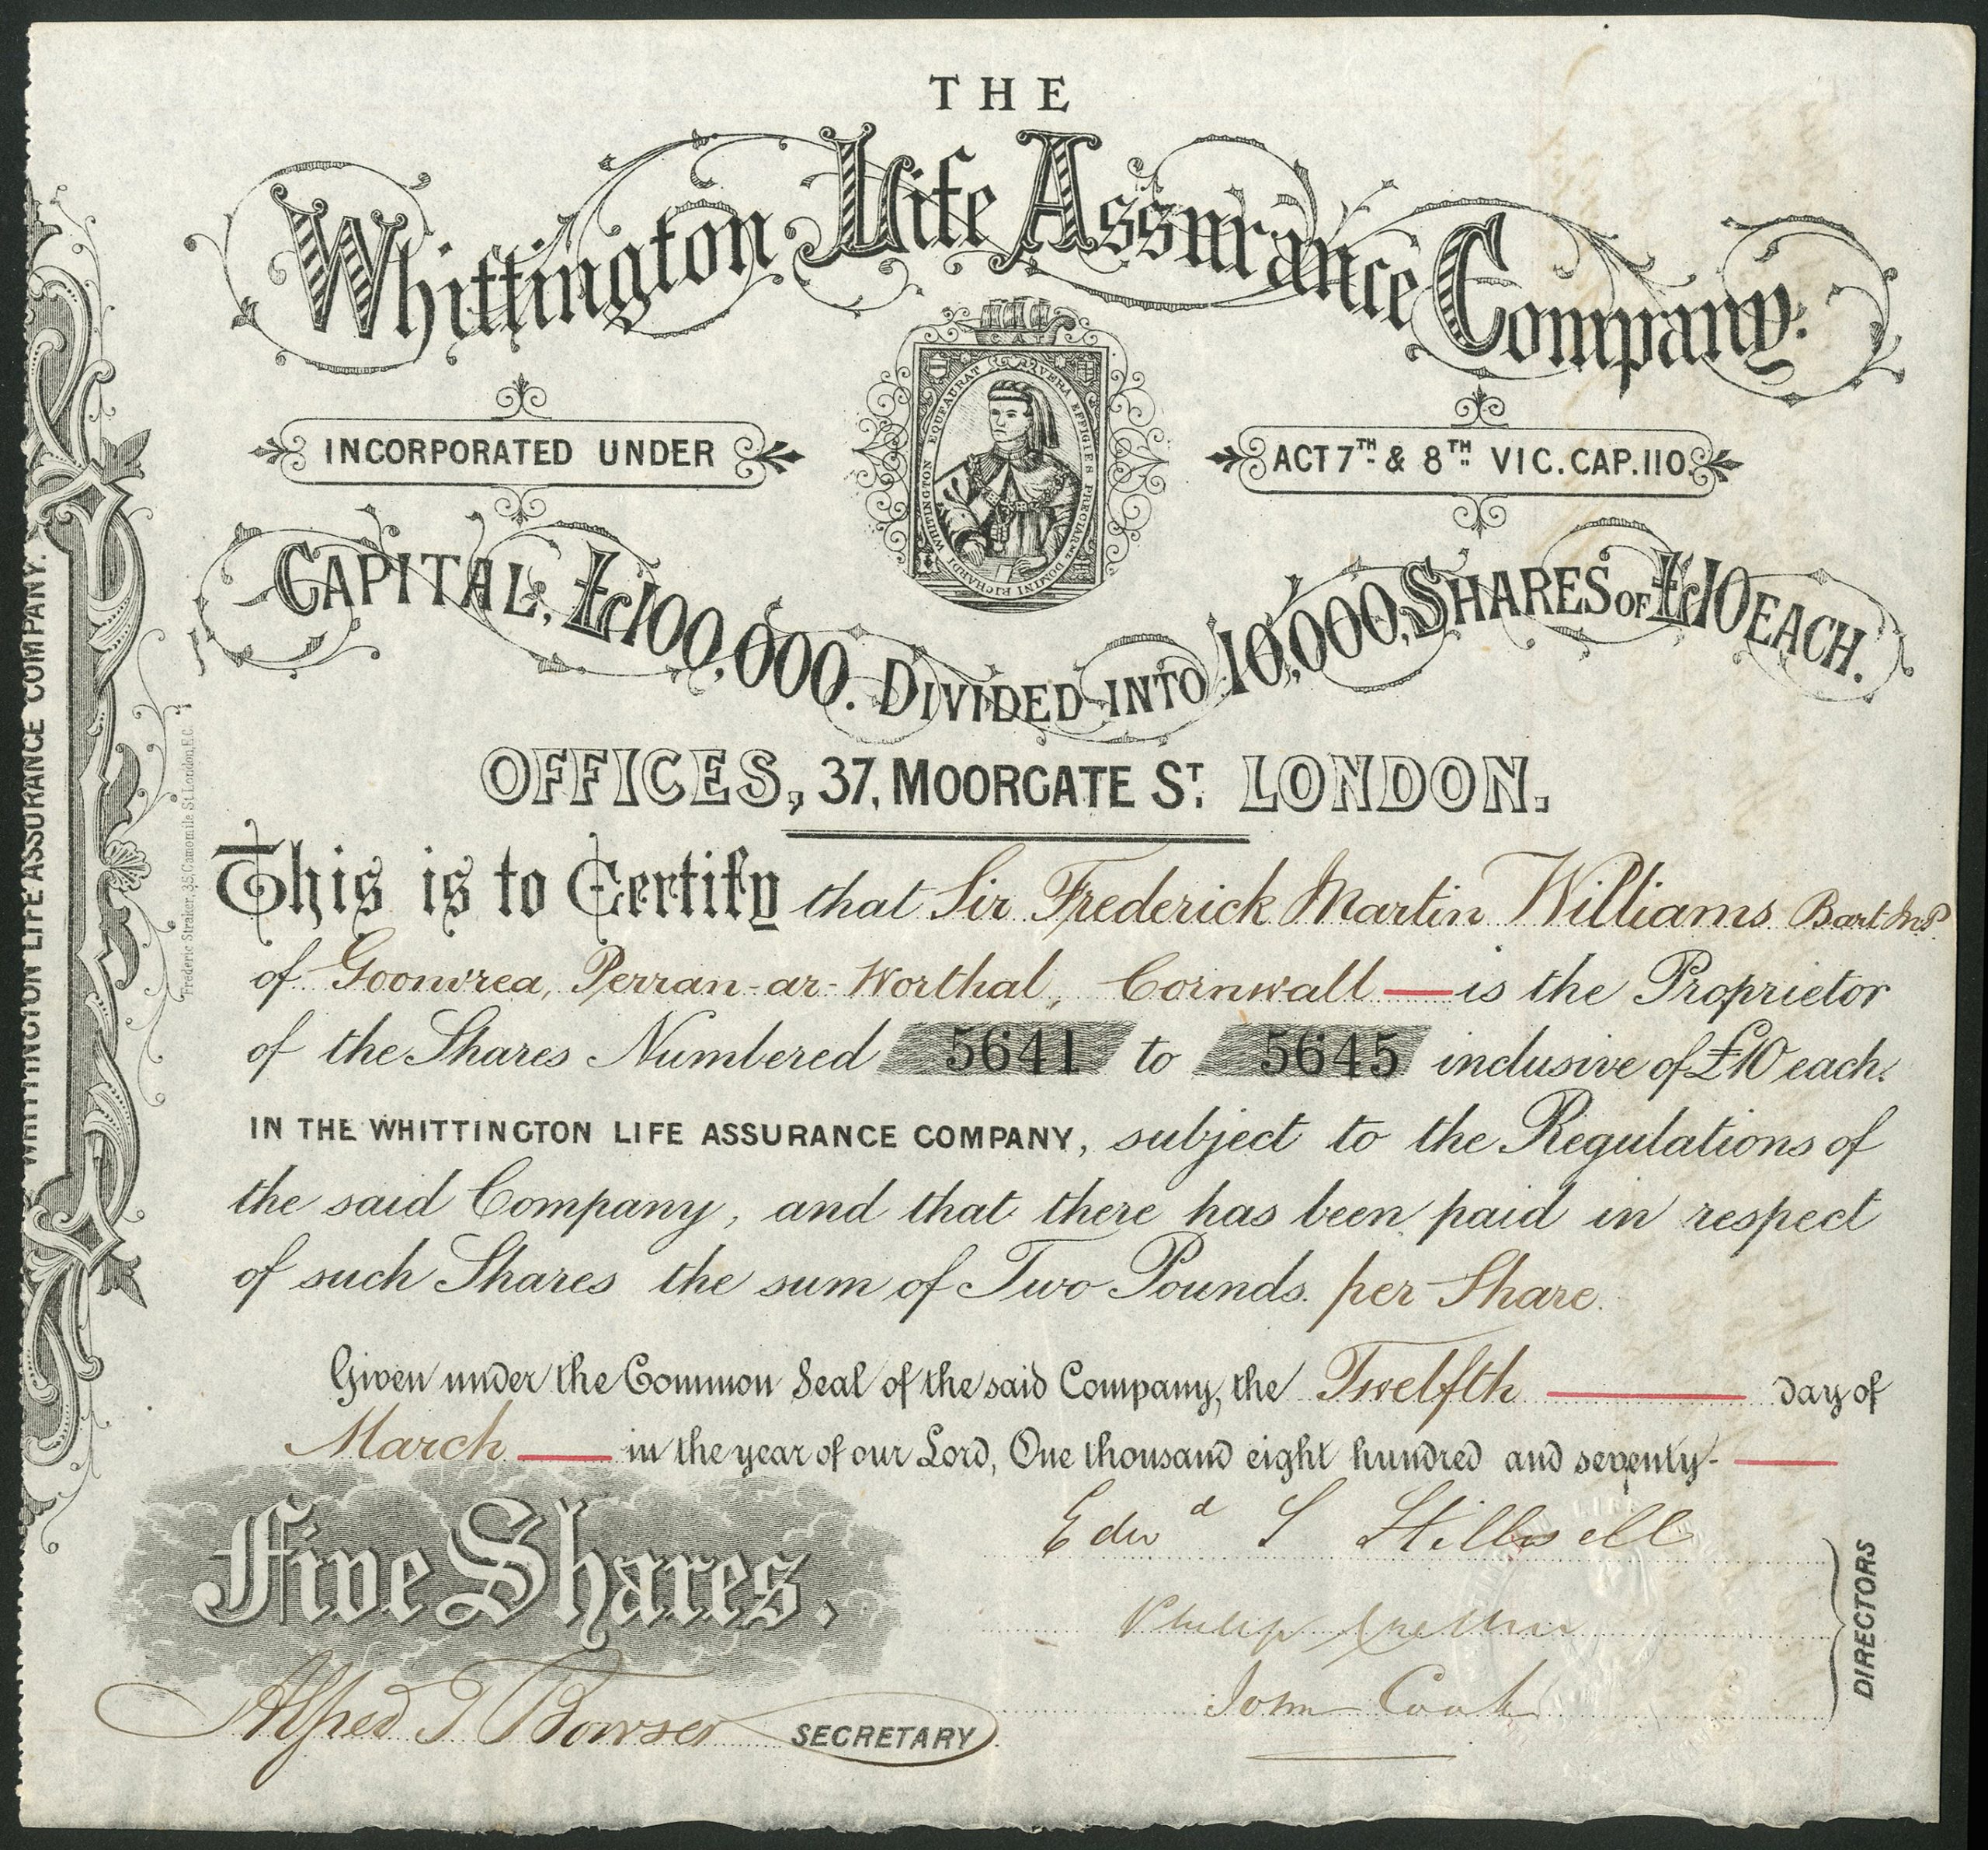 THE
Whittington Life Assurance Company.
INCORPORATED UNDER
ACT 7TH & 8TH VIC. CAP. 110.
VERA EFFIGIES PRECLARI DOMINI RICHARDI WHITINGTON EQUI AURAT
CAPITAL, £100,000. DIVIDED INTO 10,000, SHARES OF £10 EACH.
OFFICES, 37, MOORGATE ST. LONDON.
This is to Certify that Sir Frederick Martin Williams Bart M.P.
of Goonvrea, Perran-ar-Worthal, Cornwall — is the Proprietor
of the Shares Numbered 5641 to 5645 inclusive of £10 each.
IN THE WHITTINGTON LIFE ASSURANCE COMPANY, subject to the Regulations of
the said Company, and that there has been paid in respect
of such Shares the sum of Two Pounds per Share.
Given under the Common Seal of the said Company, the Twelfth — day of
March — in the year of our Lord, One thousand eight hundred and seventy- —
Five Shares.
Edwd S Stillwell
Philip
John Cook
DIRECTORS
Alfred T Bowser SECRETARY
WHITTINGTON LIFE ASSURANCE COMPANY.
Frederic Straker, 35, Camomile St. London, E.C.